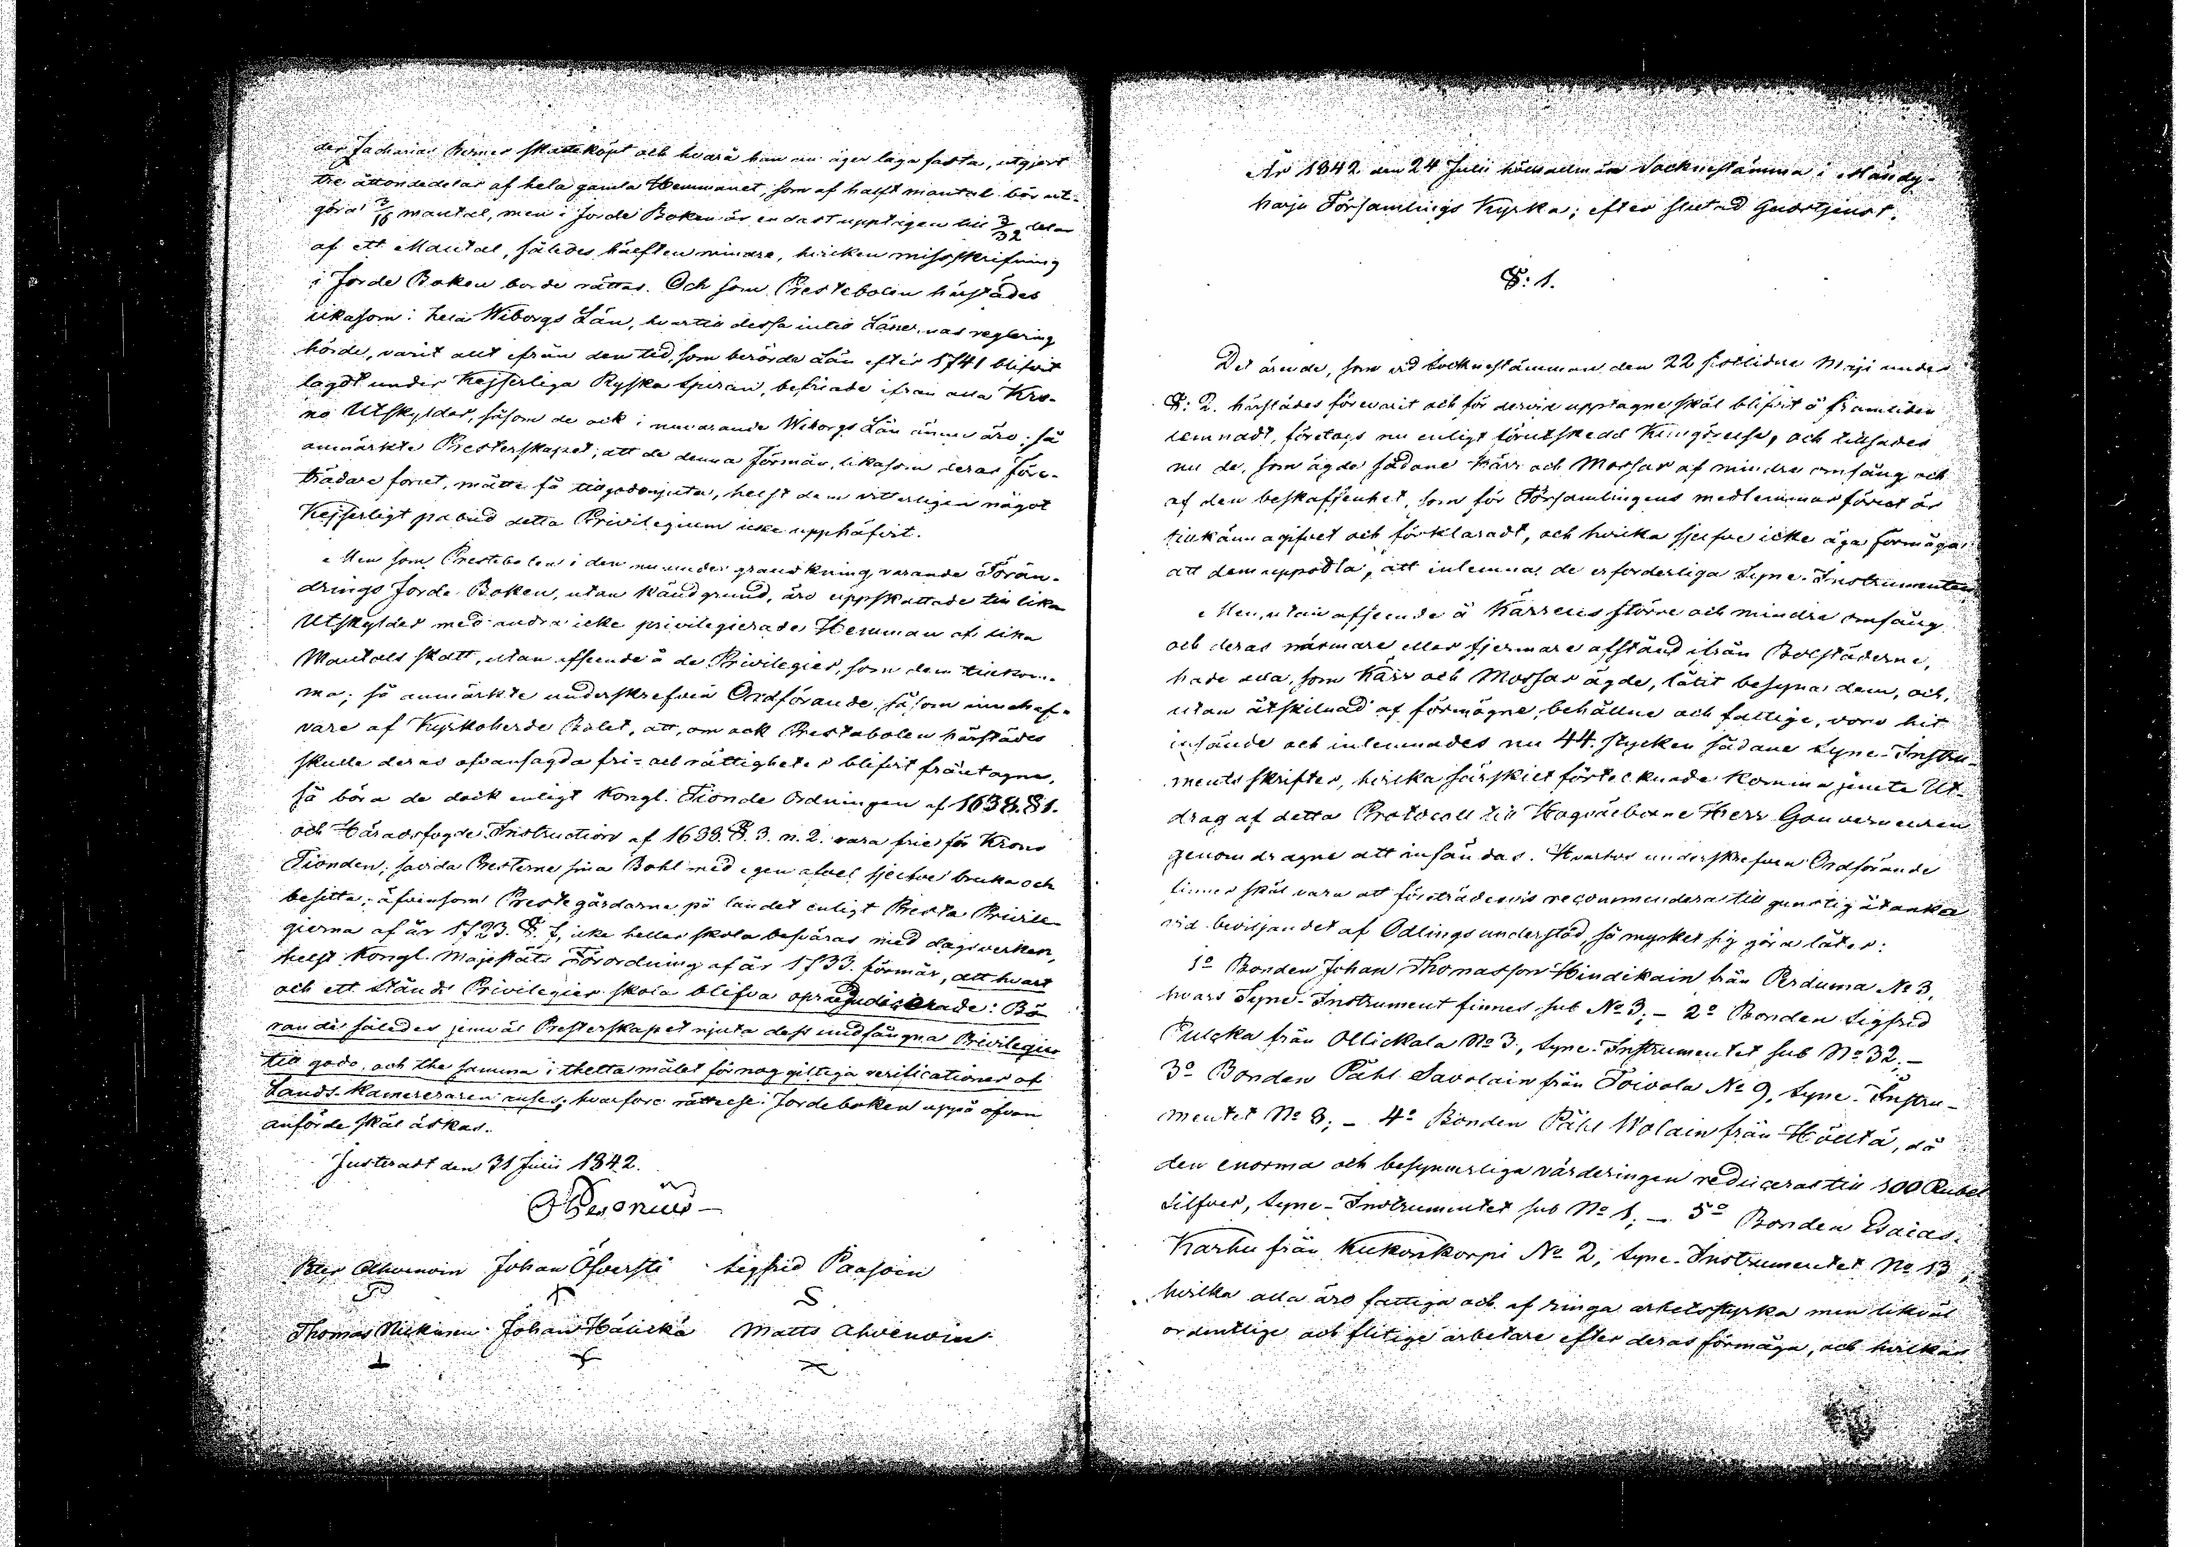 der Zacharias Berner skatteköpt och hvarå han nu äger laga fasta, utgjort
tre åttondedelar af hela gamla Hemmanet, som af halft mantal bör ut-
göra 3/16 mantal, men i Jorde Boken är endast upptagen till 3/32 delar
af ett Mantal, således hälften mindre, hvilken missskrifning
i Jorde Boken borde rättas. Och som Prestebolen härstädes
likasom i hela Wiborgs Län, hvartill dessa intill Länernas reglering
hörde, varit allt ifrån den tid, som berörde Län efter 1741 blifvit
lagdt under Kejserliga Ryska Spiran, befriade ifrån alla Kro-
no Utskylder, såsom de ock i nuvarande Wiborgs Län ännu äro; så
anmärkte Presterskapet, att de denna förmån, likasom deras före-
trädare förut, måtte få tillgodonjuta, helst dem vitterligen något
Kejserligt påbud detta Privilegium icke upphäfvit.
Men som Prestebolen i den nu under granskning varande Förän-
drings Jorde Boken, utan känd grund, äro uppskattade till lika
Utskylder med andra icke privilegierade Hemman af lika
Mantals skatt, utan afseende å de Privilegier, som dem tillkom-
ma; så anmärkte underskrefven Ordförande, såsom innehaf-
vare af Kyrkoherde Bolet, att, om ock Prestebolen härstädes
skulle deras ofvansagda fri- och rättigheter blifvit fråntagne,
så böra de dock enligt Kongl. Tionde Ordningen af 1638. §1.
och Häradsfogde Instruction af 1638. §. 3. n. 2. vara frie för Krono
Tionden, såvida Presterne sina Bohl med egen afvel sjelfve bruka och
besitta; äfvensom Prestegårdarne på landet enligt Presta Privile-
gierna af år 1723. §. 7, icke heller skola besväras med dagsverken,
helst Kongl. Majestäts Förordning af år 1733. förmår, att hvart
och ett Stånds Privilegier skola blifva opraejudicerade: Bö-
rande således jemväl Presterskapet njuta dess undfångna Privilegier
till godo, och the samma i thetta målet för nog giltiga verificationer af
Lands-Kamereraren anses; hvarföre rättelse i Jordeboken uppå ofvan
anförde skäl äskas.
Justeradt den 31 Julii 1842.
Peter Ahvenoin Johan Öfversti Sigfrid Paasoin
Thomas Mickinen Johan Häkickä Matts Ahvenoin
År 1842 den 24 Julii hölls allmän Sockneståmma i Mändy-
harju Församlings Kyrka; efter slutad Gudstjenst.
§: 1.
Det ärende, som vid Socknestämman den 22 sistlidne Maji under
§: 2. härstädes förevarit och för dervid upptagne skäl blifvit å framtiden
lemnadt, företogs nu enligt förutskedd Kungörelse, och tillsades
nu de, som ägde sådane Kärr och Mossar af mindre omfång och
af den beskaffenhet, som för Församlingens medlemmar förut är
tillkännagifvet och förklaradt, och hvilka sjelfve icke äga förmåga
att dem uppodla, att inlemna de erforderliga Syne-Instrumenten.
Men, utan afseende å Kärrens större och mindre omfång
och deras närmare eller fjermare afstånd ifrån Bolstäderne,
hade alla, som Kärr och Mossar ägde, låtit besyna dem, och,
utan åtskilnad af förmögne, behållne och fattige, voro hit
insände och inlemnades nu 44. stycken sådane Syne-Instru-
ments skrifter, hvilka särskilt förtecknade komma jemte Ut-
drag af detta Protocoll till Högvälborne Herr Gouverneuren
genom dragne att insändas. Hvarhos underskrefven Ordförande
finner skäl vara att företrädesvis recommendera till gunstig åtanka
vid beviljandet af Odlingsunderstöd så mycket sig göra låter:
1o Bonden Johan Thomasson Hindikain från Perduma No 3,
hvars Syne-Instrument finnes sub No 3; – 2o Bonden Sigfrid
Pulcka från Ollickala No 3, Syne-Instrumentet sub No 32; –
3o Bonden Påhl Savolain från Toivola No 9, Syne-Instru-
mentet No 8; – 4o Bonden Påhl Wolain från Höltä, då
den enorma och besynnerliga värderingen reduceras till 100 Rubel
Silfver, Syne-Instrumentet sub No 1; – 5o Bonden Esaias
Karhu från Kukonkorpi No 2, Syne-Instrumentet No 13;
hvilka alla äro fattiga och af ringa arbetsstyrka men likväl
ordentlige och flitige arbetare efter deras förmåga, och hvilkas